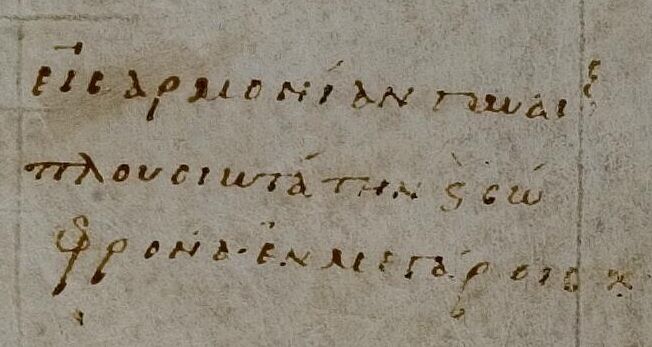 εἰς ἁρμονίαν γυναικ
πλουσιωτάτην ϗ σώ
φρονα· ἐν μεγάροις